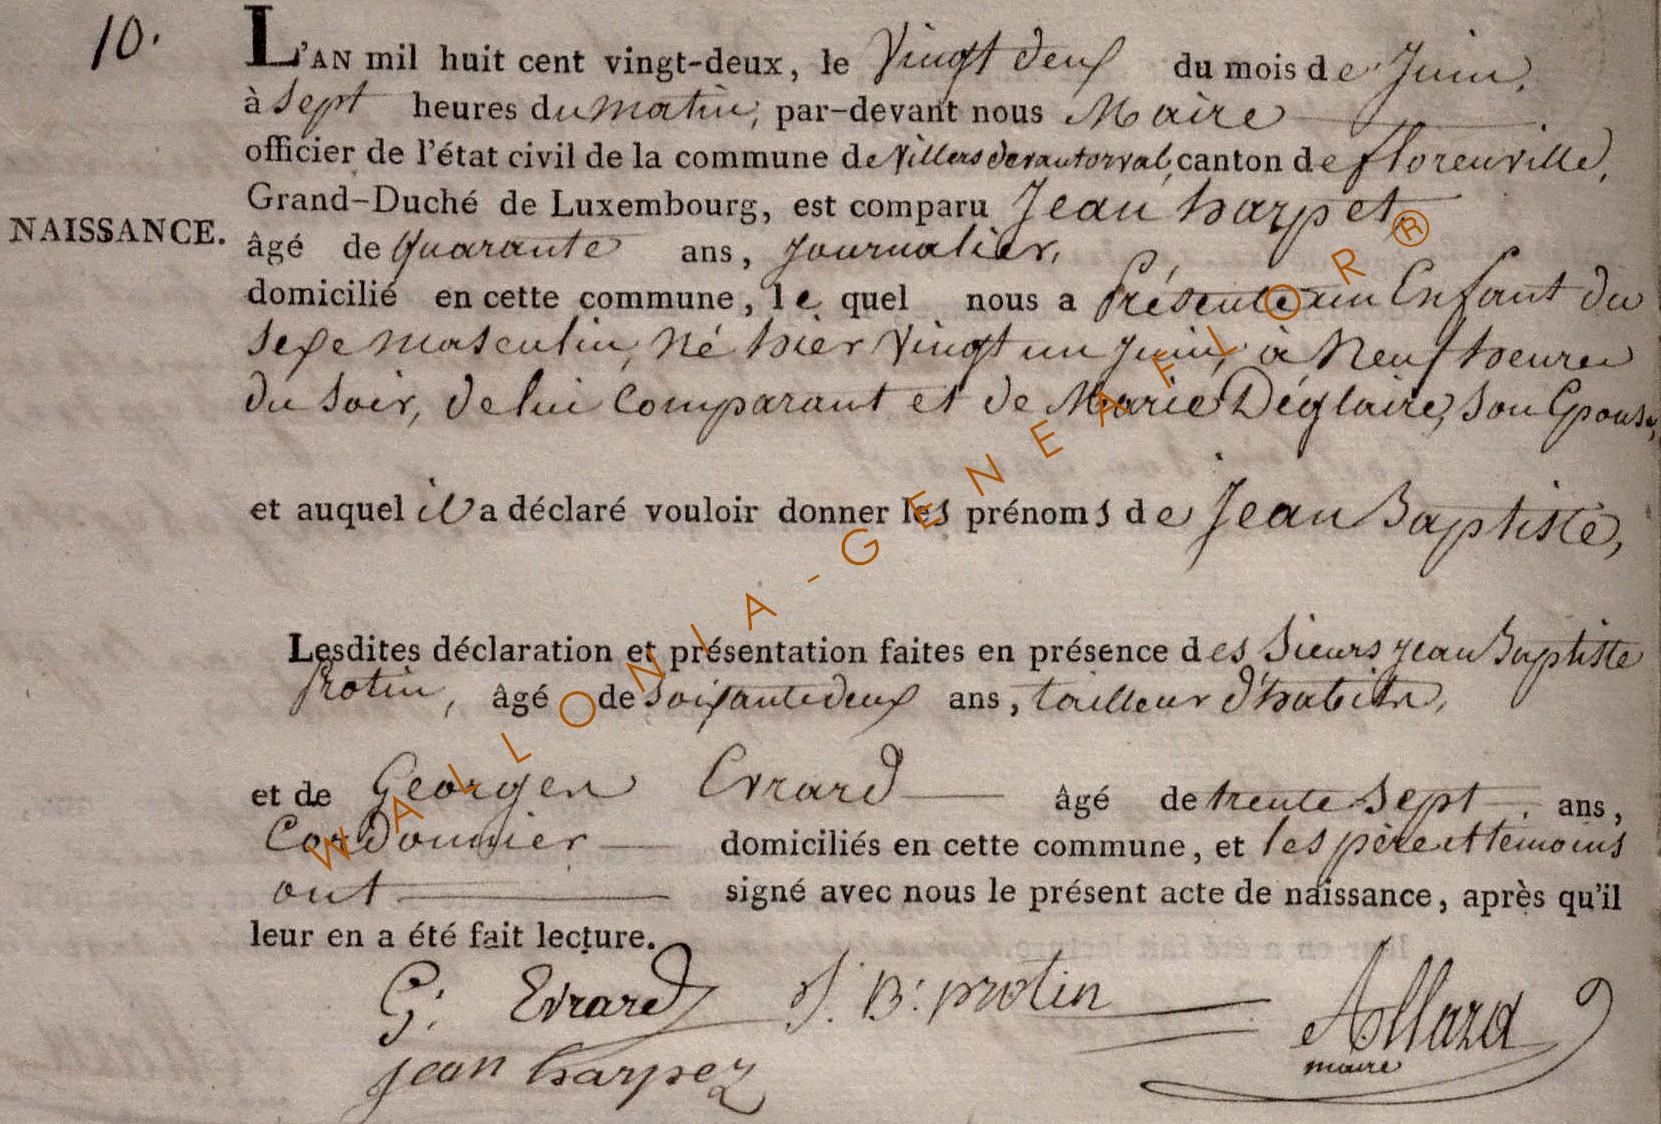 10.
L'AN mil huit cent vingt-deux, le Vingt deux du mois de Juin,
à Sept heures du matin, par-devant nous Maire
officier de l'état civil de la commune de Villers devant orval, canton de florenville,
Grand-Duché de Luxembourg, est comparu Jean harpet,
NAISSANCE.
âgé de quarante ans, journalier,
domicilié en cette commune, le quel nous a Présenté un Enfant du
sexe masculin, né hier Vingt un juin, à Neuf heures
du Soir, de lui Comparant et de Marie Déglaire, son Epouse,
et auquel il a déclaré vouloir donner les prénoms de Jean Baptiste,
Lesdites déclaration et présentation faites en présence des Sieurs Jean Baptiste
Protin, âgé de Soixante deux ans, tailleur d'habits,
et de Georges Evrard âgé de trente Sept ans,
Cordonnier domiciliés en cette commune, et les père et témoins
ont signé avec nous le présent acte de naissance, après qu'il
leur en a été fait lecture.
G: Evrard J. B: protin Allard
maire
jean harpez
WALLONIA-GENEAFLOR ®